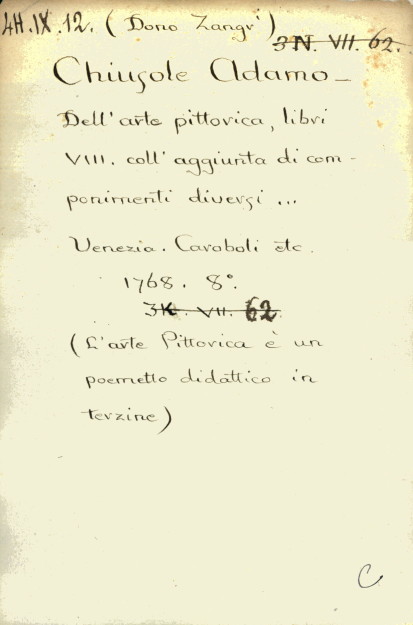 4H.IX.12. (Dono Zangr')
3N. VII. 62.
Chiusole Adamo_
Dell'arte pittorica, libri
VIII. coll'aggiunta di com-
ponimenti diversi ...
Venezia. Caroboli etc.
1768. 8°.
3K. VII. 62
(L'arte Pittorica è un
poemetto didattico in
terzine)
C